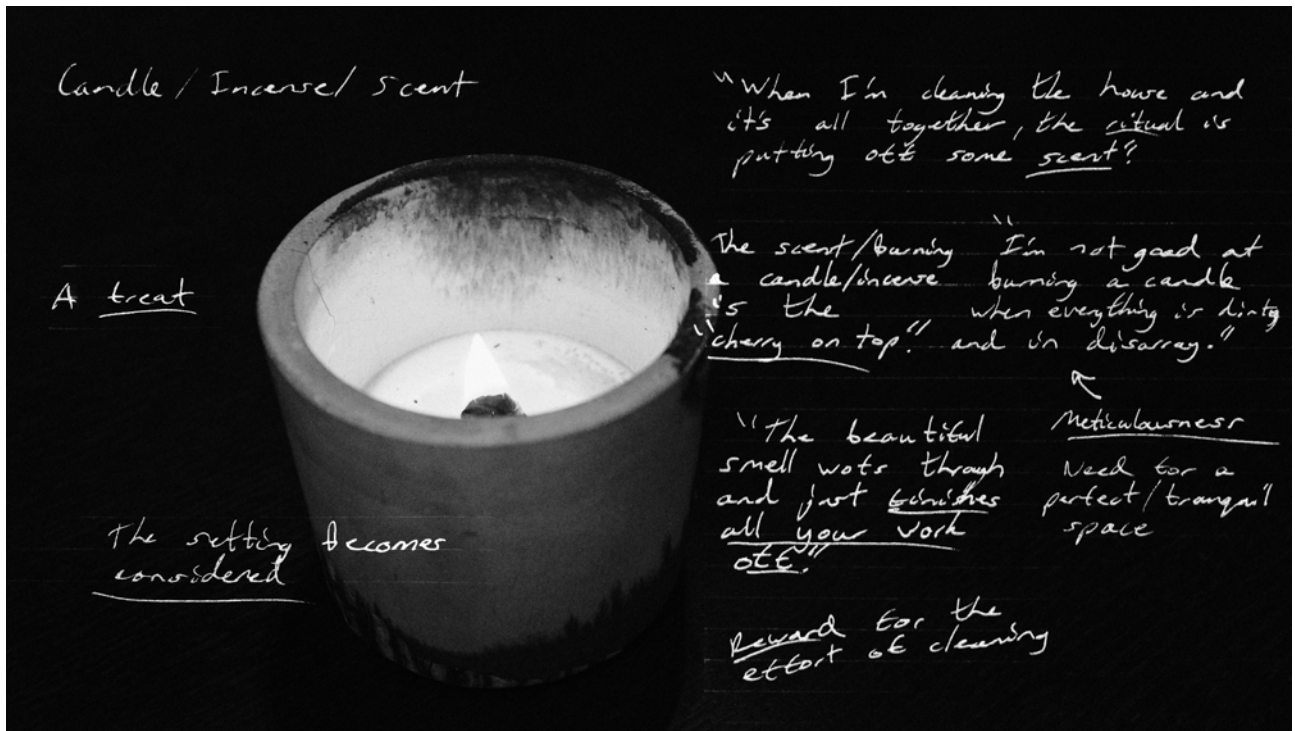 Candle / Incense / Scent
A treat
The setting Becomes
considered
"When I'm cleaning the house and
it's all together, the ritual is
putting off some scent".
The scent/burning
a candle/incense
is the
"cherry on top".
"I'm not good at
burning a candle
when everything is dirty
and in disarray."
Meticulousness
Need for a
perfect/tranquil
space
"The beautiful
smell wofs through
and just finishes
all your work
off."
Reward for the
effort of cleaning